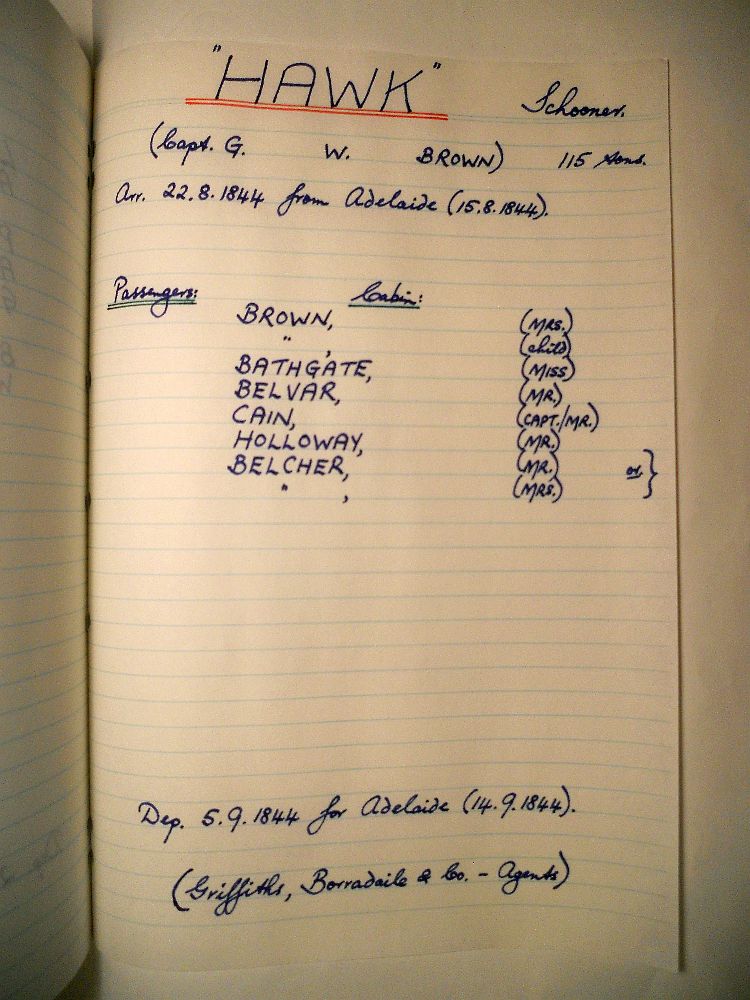 "HAWK" Schooner.
(Capt. G. W. BROWN) 115 tons.
Arr. 22.8.1844 from Adelaide (15.8.1844).
Passengers: Cabin:
BROWN, (MRS.)
" , (child)
BATHGATE, (MISS)
BELVAR, (MR.)
CAIN, (CAPT./MR.)
HOLLOWAY, (MR.)
BELCHER, (MR. or }
" , (MRS.)
Dep. 5.9.1844 for Adelaide (14.9.1844).
(Griffiths, Borradaile & Co. - Agents)